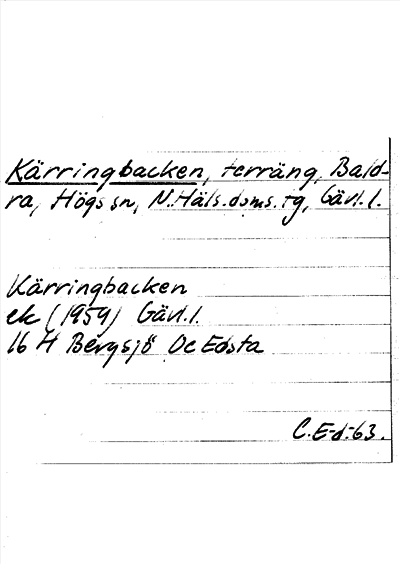 Kärringbacken, terräng, Bald-
ra, Högs sn, N.Häls.doms.tg, Gävl.l.
Kärringbacken
ek (1959) Gävl.l.
16 H Bergsjö Oc Edsta
C.E-d-63.